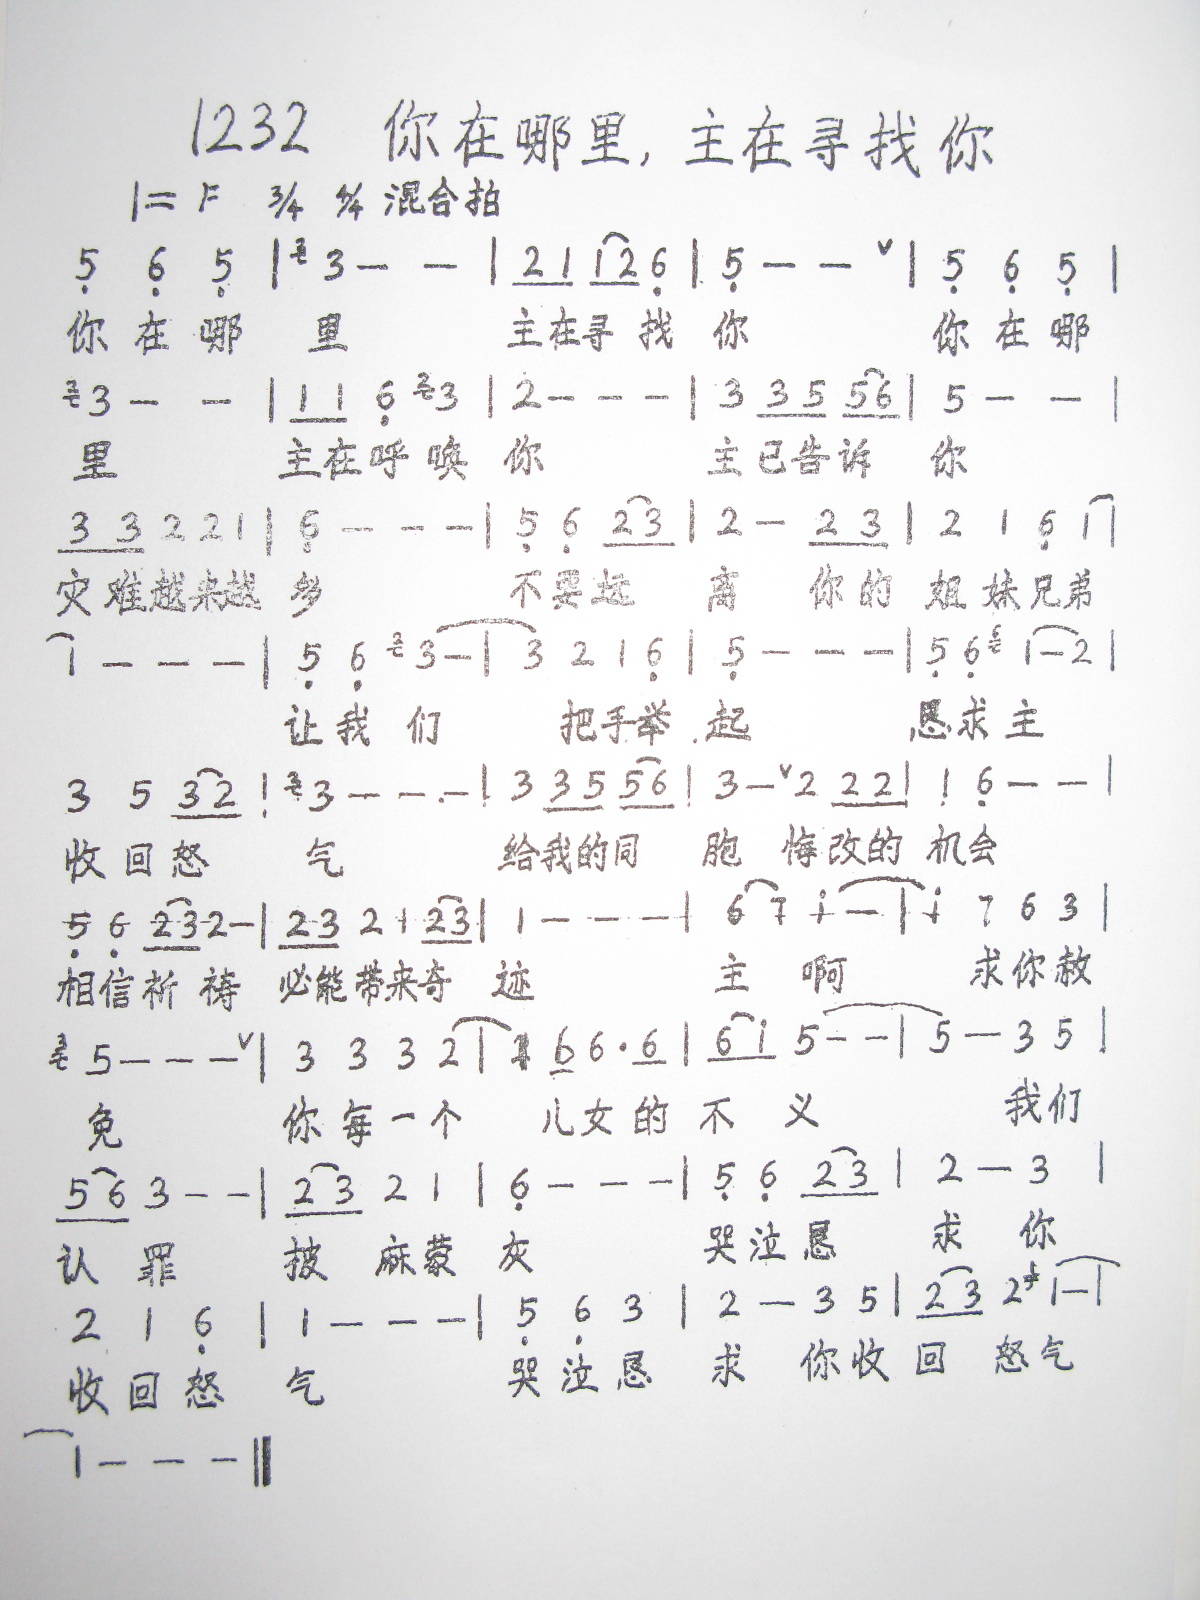 1232 你在哪里,主在寻找你
1=F 3/4 4/4 混合拍
5 6 5 | 3 - - | 2 1 1 2 6 | 5 - - ∨ | 5 6 5 |
你在哪 里 主在寻找 你 你在哪
3 - - | 1 1 6 3 | 2 - - - | 3 3 5 5 6 | 5 - - |
里 主在呼唤 你 主已告诉 你
3 3 2 2 1 | 6 - - - | 5 6 2 3 | 2 - 2 3 | 2 1 6 1 |
灾难越来越 多 不要远 离 你的 姐妹兄弟
1 - - - | 5 6 3 - | 3 2 1 6 | 5 - - - | 5 6 1 - 2 |
让我们 把手举 起 恳求主
3 5 3 2 | 3 - - - | 3 3 5 5 6 | 3 - ∨ 2 2 2 | 1 6 - - |
收回怒 气 给我的同 胞 悔改的 机会
5 6 2 3 2 - | 2 3 2 1 2 3 | 1 - - - | 6 7 i - | i 7 6 3 |
相信祈祷 必能带来奇 迹 主啊 求你赦
5 - - - ∨ | 3 3 3 2 | 6 6 · 6 | 6 i 5 - - | 5 - 3 5 |
免 你每一个 儿女的 不义 我们
5 6 3 - - | 2 3 2 1 | 6 - - - | 5 6 2 3 | 2 - 3 |
认罪 披麻蒙 灰 哭泣恳 求 你
2 1 6 | 1 - - - | 5 6 3 | 2 - 3 5 | 2 3 2 1 - |
收回怒 气 哭泣恳 求 你收 回 怒气
1 - - - ‖